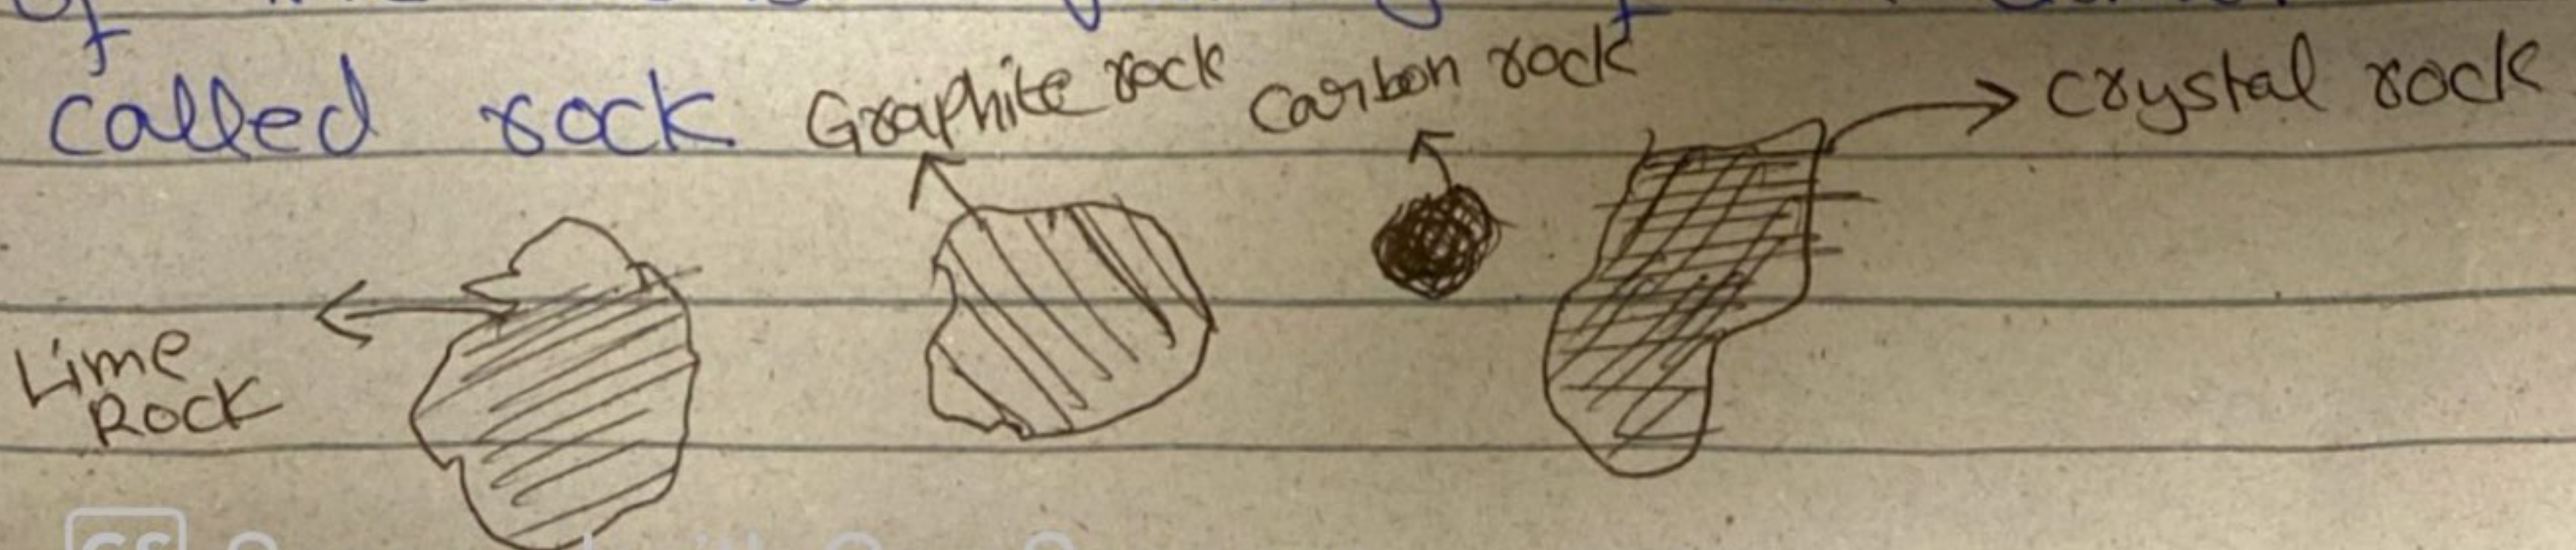 called rock
Graphite rock
Carbon rock
Crystal rock
Lime
Rock